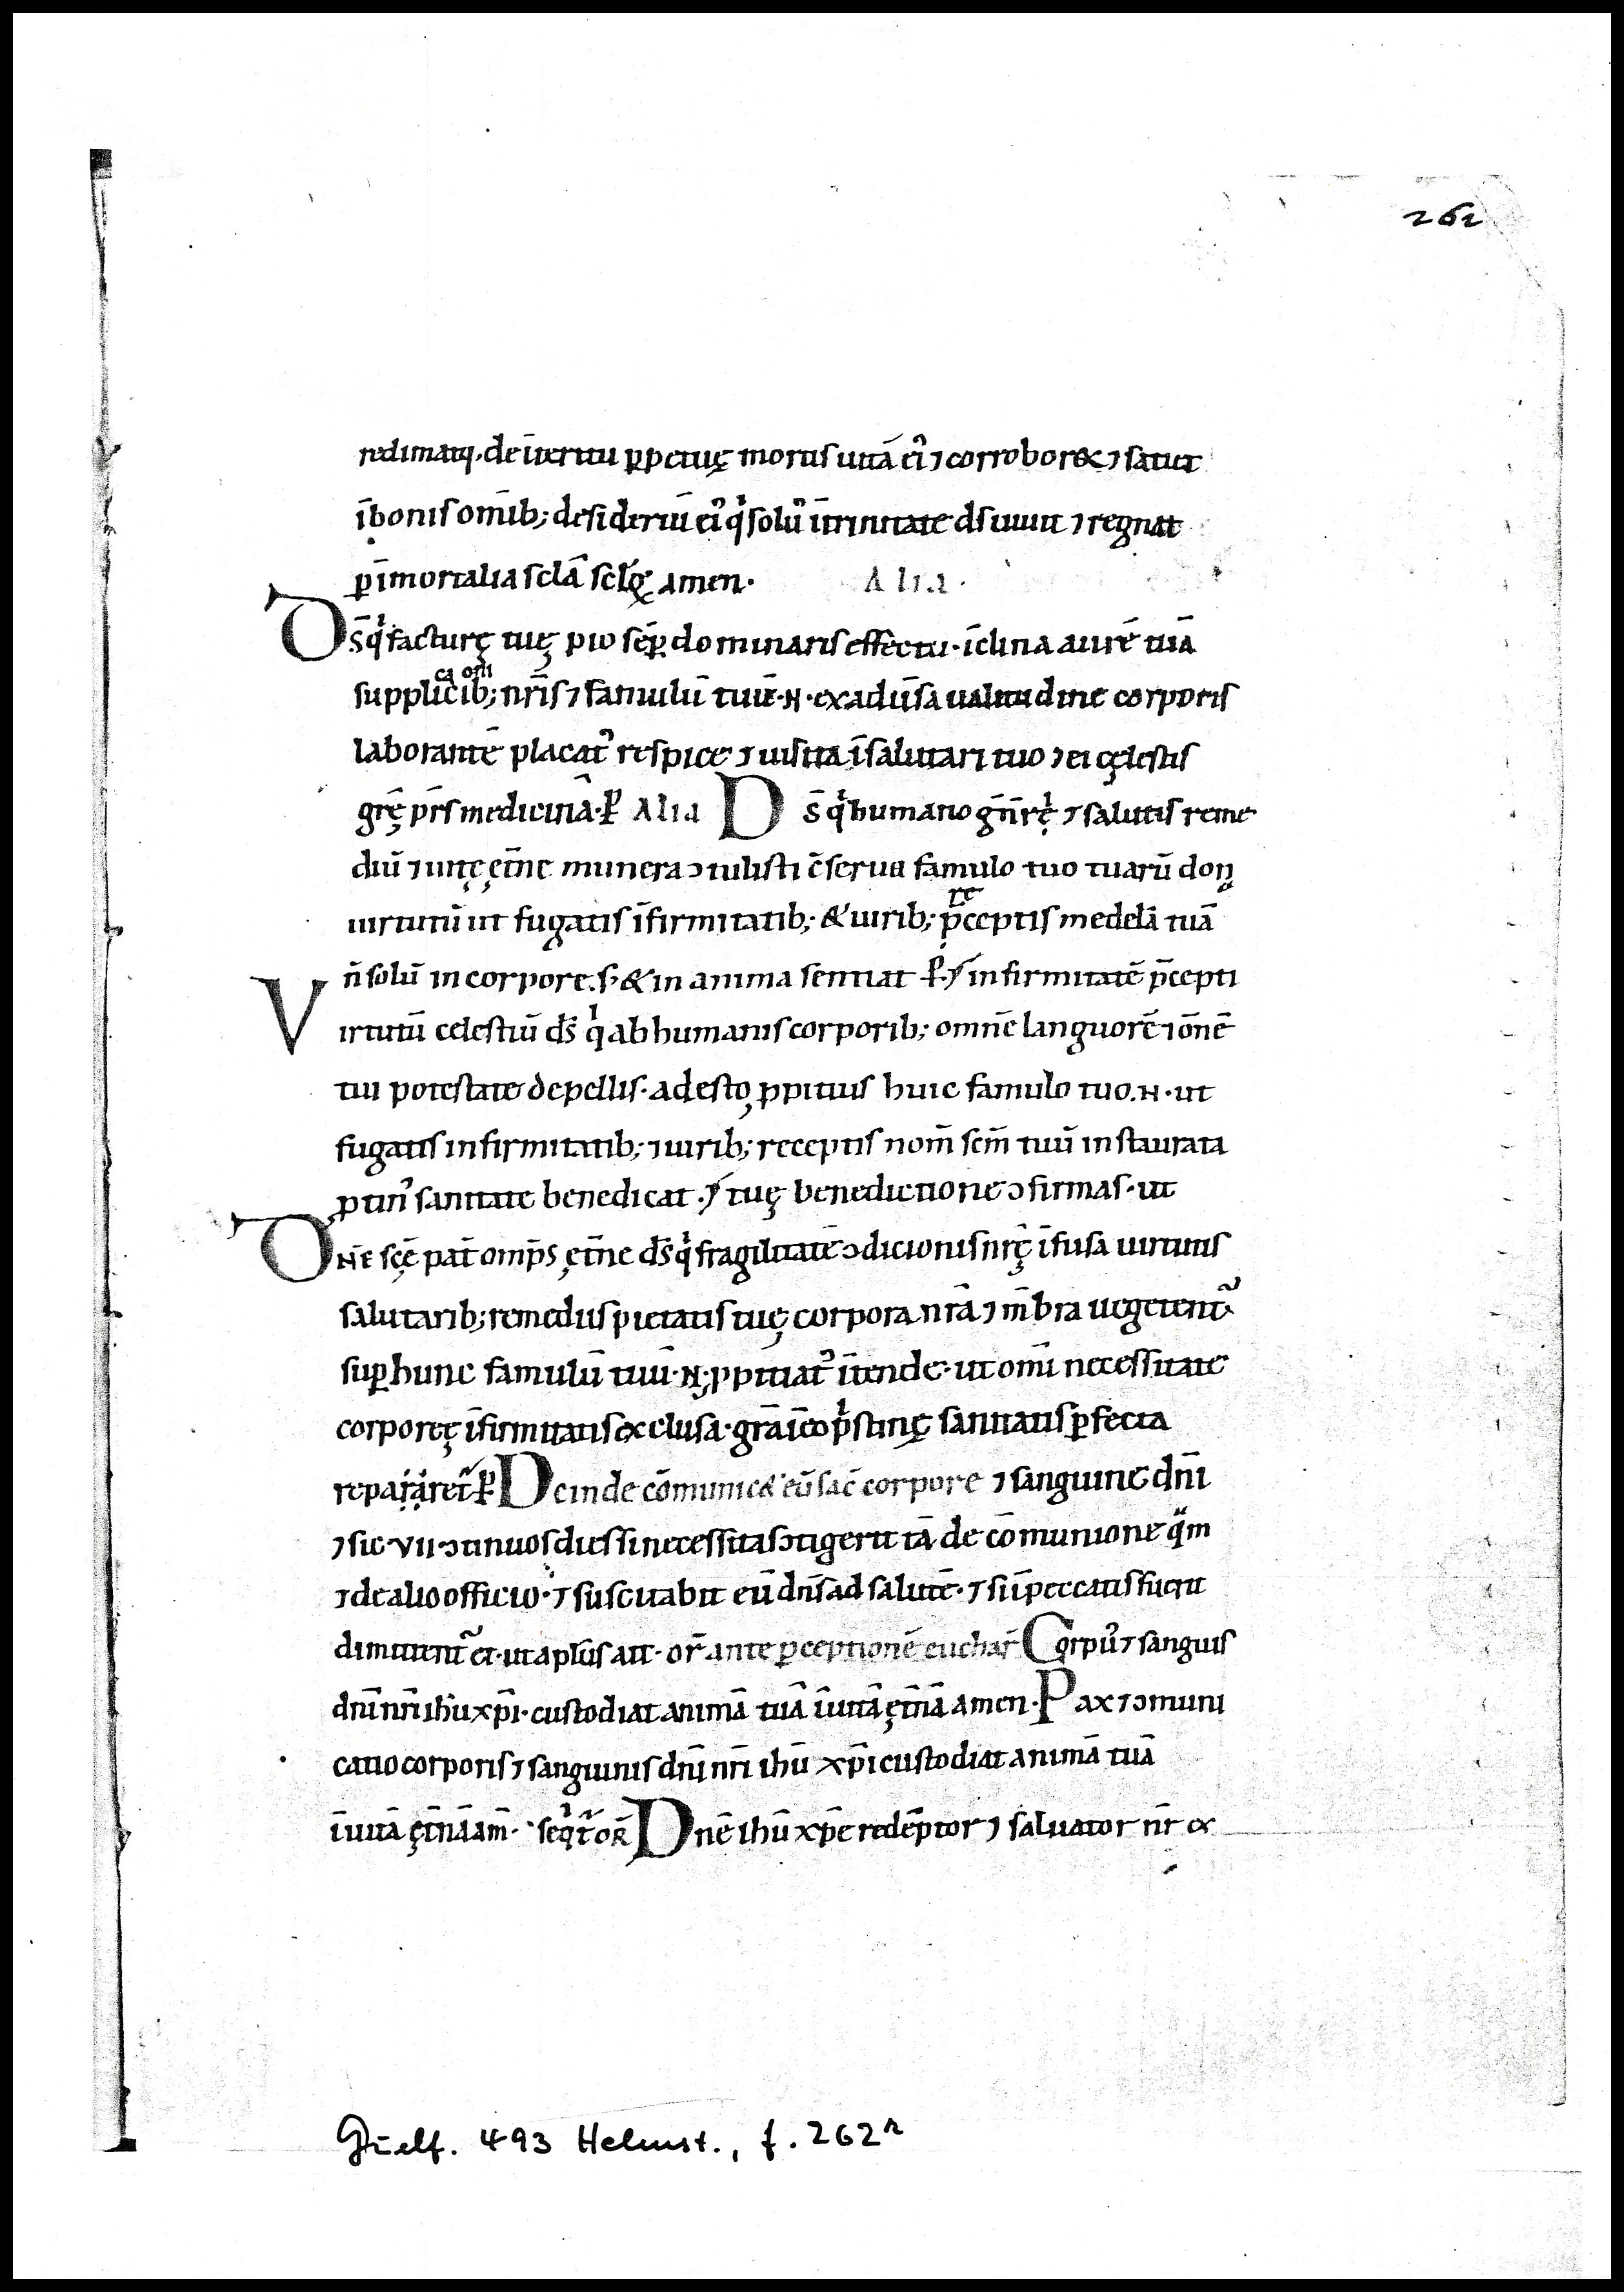 262
redimatq̣. de īteritu ꝑpetuę mortis uitā ei᷒ ⁊ corroborꝫ & ⁊ satiet
ī bonis omīb; desideriū ei᷒ qͥ solu᷒ ī trinitate ds̄ uiuit ⁊ regnat
ꝑ īmortalia sclā sclōꝝ amen. Alia.
Ds̄ qͥ facturę tuę pio sēꝑ dominaris effectu. īclina aurē tuā
ca om̄
supplicib; nr̄is ⁊ famulū tuū .N. ex aduīsa ualitudine corporis
laborantē placat᷒ respice ⁊ uisita ī salutari tuo ⁊ ei cęlestis
grę̄ pr̄s medicinā. ꝑ Alia Ds̄ qͥ humano gn̄rę̄ ⁊ salutis reme
diū ⁊ uitę ęt̄ne munera ɔtulisti c̄serua famulo tuo tuarū don
re
uirtutū ut fugatis īfirmitatib; & uirib; p̄ceptis medelā tuā
n̄ solū in corpore. s; & in anima sentiat ꝑ. infirmitatē p̄cepti
Virtutū celestiū ds̄ qͥ ab humanis corporib; omnē languorē ⁊ om̄ē
tui potestate depellis. adesto ꝓpitius huic famulo tuo .N. ut
fugatis infirmitatib; ⁊ uirib; receptis nom̄ scm̄ tuū instaurata
ꝓtin᷒ sanitate benedicat. tuę benedictione ɔfirmas. ut
Dn̄e sc̄ę pat̄ omp̄s ęt̄ne ds̄ qͥ fragilitatē ɔdicionis nr̄ę īfusa uirtutis
salutarib; remediis pietatis tuę corpora nr̄a ⁊ m̄bra uegetent᷑
suꝑ hunc famulū tuū .N. ꝓpitiat᷒ ītende. ut omī necessitate
corporeę īfirmitatis exclusa. grā ī eo pͥstinę sanitatis ꝑfecta
reparạret᷑ ꝑ Deinde cōmunic& eū sac̄ corpore ⁊ sanguine dn̄i
⁊ sic .VII. ɔtinuos dies si necessitas ɔtigerit tā de cōmunione qͣm
⁊ de alio officio. ⁊ suscitabit eū dn̄s ad salutē. ⁊ si ī peccatis fuerit
dimittent᷑ ei. ut apłus ait. or̄ ante ꝑceptionē euchar̄ Corpu᷒ ⁊ sanguis
dn̄i nr̄i ihū xp̄i. custodiat animā tuā ī uitā ęt̄nā amen. Pax ⁊ ɔmuni
catio corporis ⁊ sanguinis dn̄i nr̄i ihū xp̄i custodiat animā tuā
ī uitā ęt̄nā am̄. seqͥt᷑ oR̄ Dnē ihū xp̄e redēptor ⁊ saluator nr̄ ex
Guelf. 493 Helmst., f. 262r